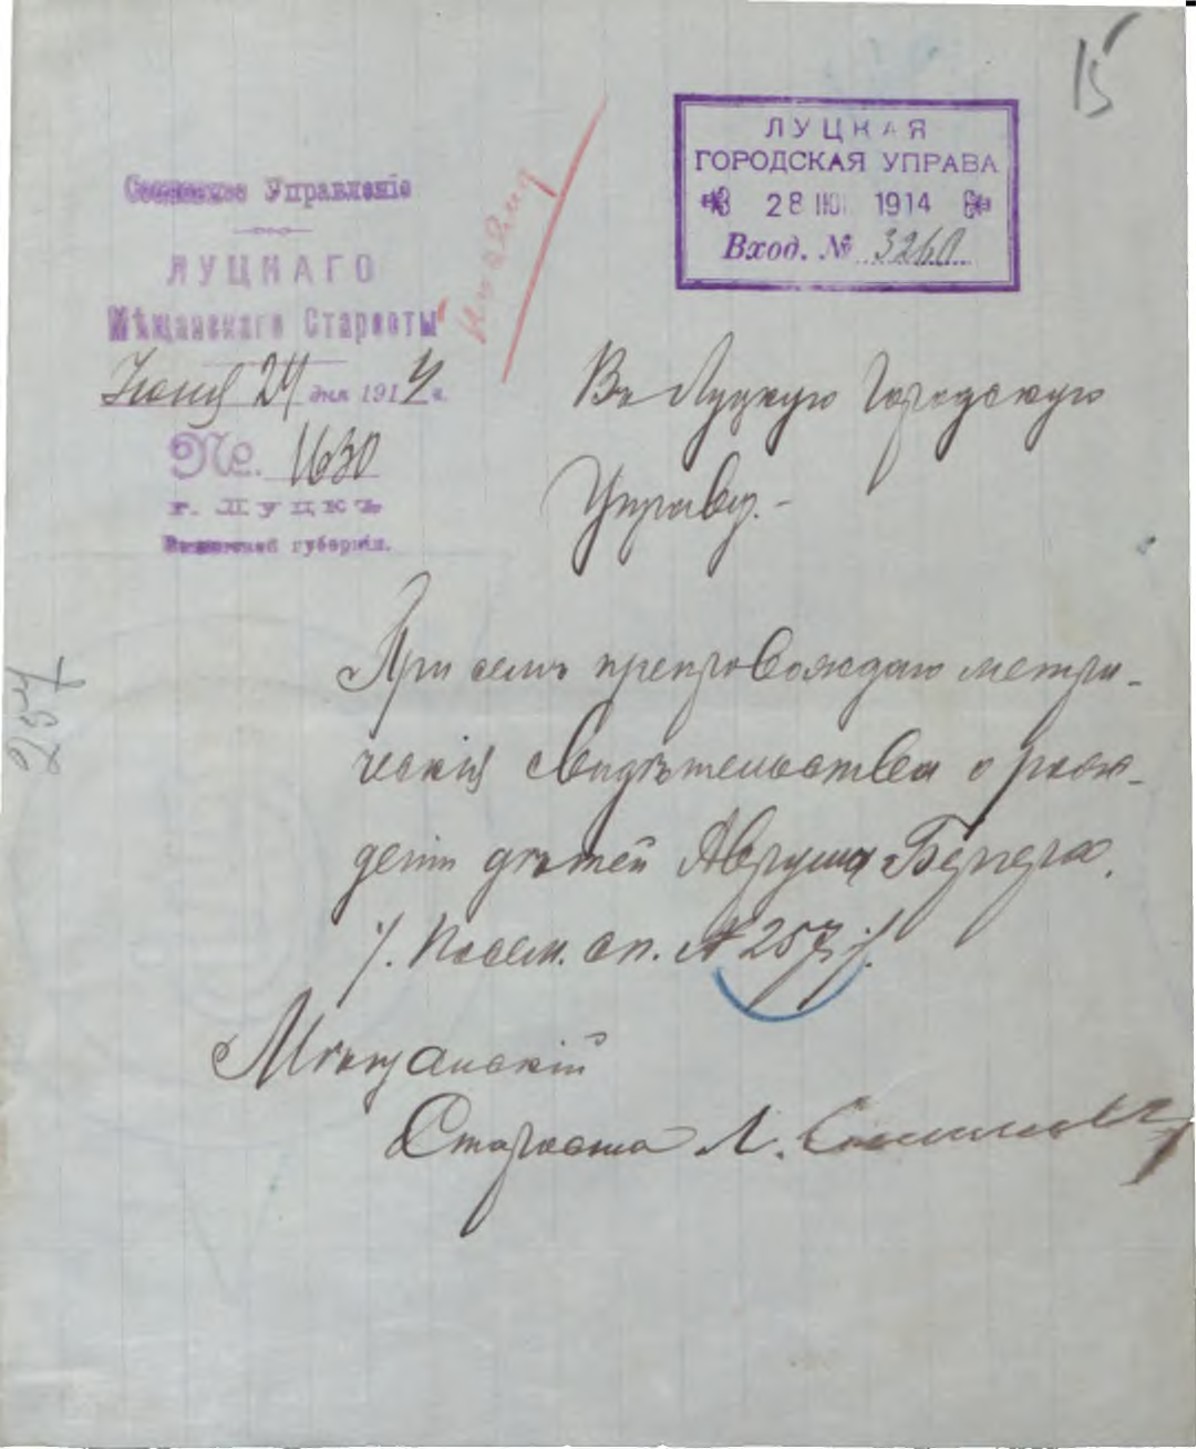 15
Сословное Управленіе
ЛУЦКАГО
Мѣщанскаго Старосты
Іюня 24 дня 1914 г.
№. 1630
г. Луцкъ
Волынской губерніи.
ЛУЦКАЯ
ГОРОДСКАЯ УПРАВА
28 ІЮН 1914
Вход. № 3260
Въ Луцкую Городскую
Управу.-
257
При семъ препровождаю метри-
ческія свидѣтельства о рож-
деніи дѣтей Аврума Бергера.
/. Посем. сп. № 257 /.
Мѣщанскій
Староста Л.